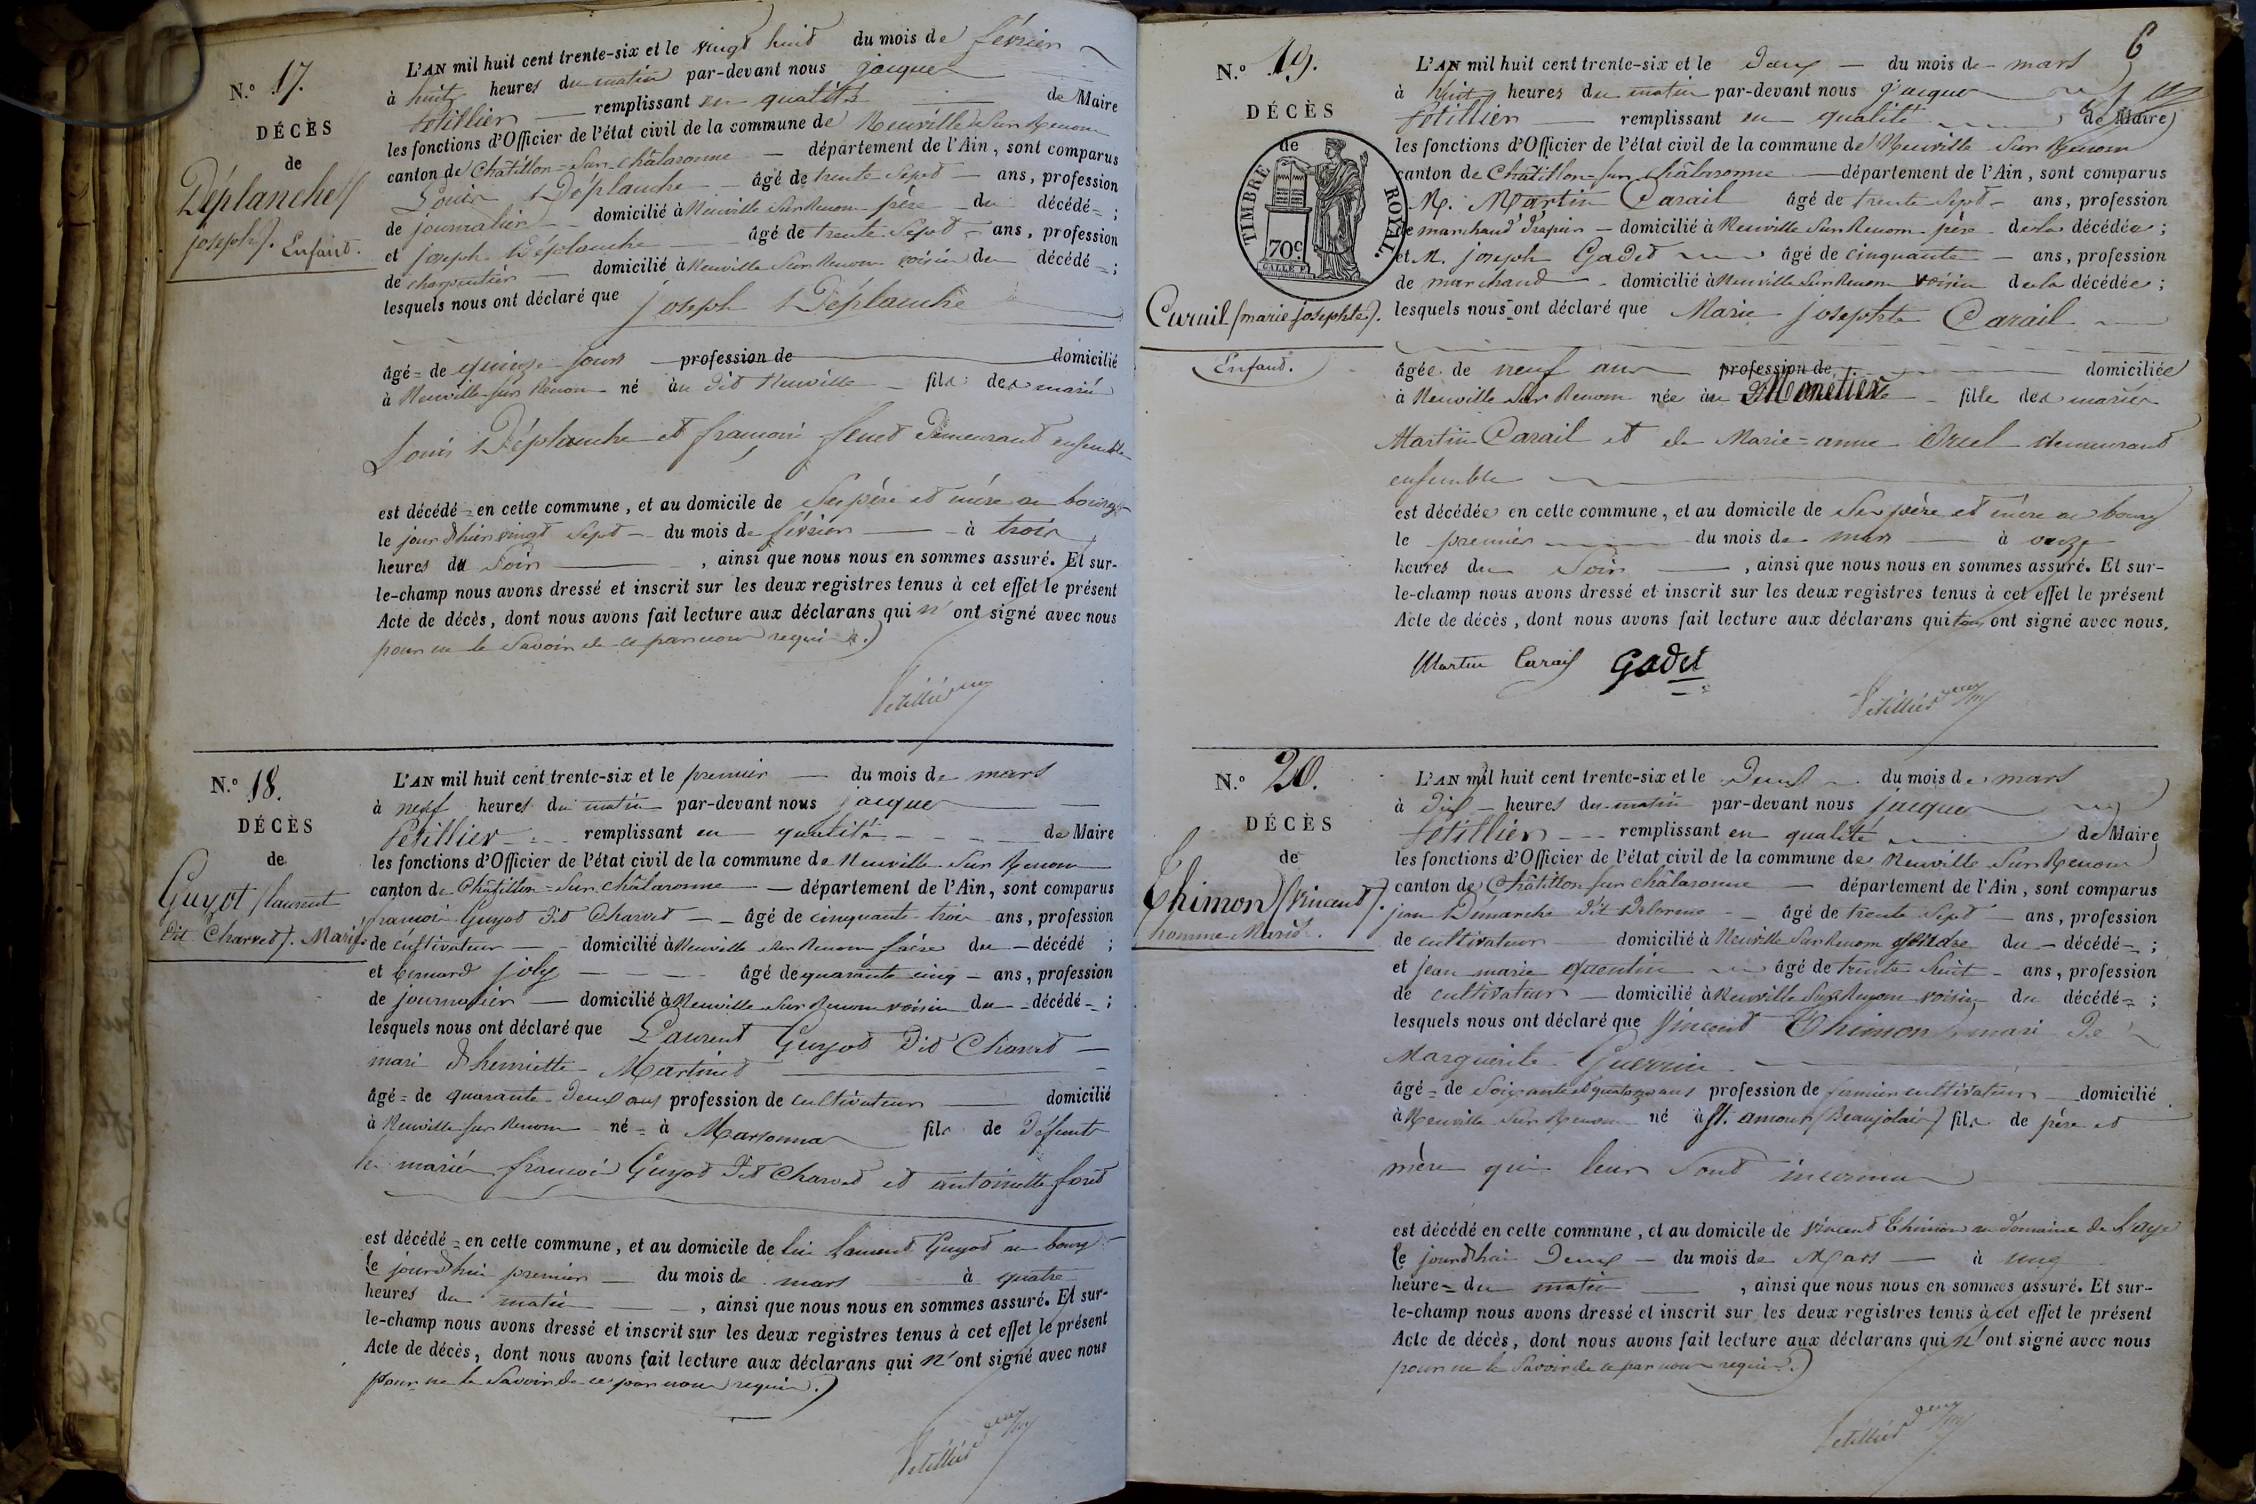 N.º 17.
DÉCÈS
de
Déplanche
(joseph). Enfant.
L'AN mil huit cent trente-six et le vingt huit du mois de février
à huit heures du matin par-devant nous jacques
Petillier remplissant en qualité de Maire
les fonctions d'Officier de l'état civil de la commune de Neuville Sur Renom
canton de Châtillon-Sur-châlaronne département de l'Ain, sont comparus
Louis Déplanche âgé de trente-Sept ans, profession
de journalier domicilié à Neuville Sur Renom père du décédé ;
et joseph Déplanche âgé de trente Sept ans, profession
de charpentier domicilié à Neuville Sur Renom voisin du décédé ;
lesquels nous ont déclaré que joseph Déplanche
âgé de quinze jours profession de domicilié
à Neuville sur Renom né au dit Neuville fils des mariés
Louis Déplanche et françoise demeurant ensemble
est décédé en cette commune, et au domicile de Ses père et mère au bourg
le jour d'hier vingt Sept du mois de février à trois
heures du Soir , ainsi que nous nous en sommes assuré. Et sur-
le-champ nous avons dressé et inscrit sur les deux registres tenus à cet effet le présent
Acte de décès, dont nous avons fait lecture aux déclarans qui n'ont signé avec nous
pour ne le Savoir de ce par nous requis.)
Petillier
N.º 18.
DÉCÈS
de
Guyot (laurent
dit Charvet). Marié.
L'AN mil huit cent trente-six et le premier du mois de mars
à neuf heures du matin par-devant nous jacques
Petillier remplissant en qualité de Maire
les fonctions d'Officier de l'état civil de la commune de Neuville Sur Renom
canton de Châtillon-Sur-châlaronne département de l'Ain, sont comparus
françois Guyot dit Charvet âgé de cinquante-trois ans, profession
de cultivateur domicilié à Neuville Sur Renom frère du décédé ;
et bernard joly âgé de quarante cinq ans, profession
de journalier domicilié à Neuville Sur Renom voisin du décédé ;
lesquels nous ont déclaré que Laurent Guyot dit Charvet
mari d'henriette Martinet
âgé de quarante-deux ans profession de cultivateur domicilié
à Neuville sur Renom né à Marsonnas fils de défunts
les mariés françois Guyot dit Charvet et antoinette foret
est décédé en cette commune, et au domicile de lui laurent Guyot au bourg
le jourd'hui premier du mois de mars à quatre
heures du matin , ainsi que nous nous en sommes assuré. Et sur-
le-champ nous avons dressé et inscrit sur les deux registres tenus à cet effet le présent
Acte de décès, dont nous avons fait lecture aux déclarans qui n'ont signé avec nous
pour ne le Savoir de ce par nous requis.)
Petillier
6
N.º 19.
DÉCÈS
de
TIMBRE ROYAL.
70c
Carail (marie josephte).
Enfant.
L'AN mil huit cent trente-six et le Deux du mois de mars
à huit heures du matin par-devant nous jacques
Petillier remplissant en qualité de Maire
les fonctions d'Officier de l'état civil de la commune de Neuville Sur Renom
canton de Châtillon-sur châlaronne département de l'Ain, sont comparus
M. Martin Carail âgé de trente Sept ans, profession
de marchand drapier domicilié à Neuville Sur Renom père de la décédée ;
et M. joseph Gadet âgé de cinquante ans, profession
de marchand domicilié à Neuville Sur Renom voisin de la décédée ;
lesquels nous ont déclaré que Marie josephte Carail
âgée de neuf ans profession de domiciliée
à Neuville Sur Renom née au Monétier fille des mariés
Martin Carail et de Marie-anne Oriel demeurant
ensemble
est décédée en cette commune, et au domicile de Ses père et mère au bourg
le premier du mois de mars à onze
heures du Soir , ainsi que nous nous en sommes assuré. Et sur-
le-champ nous avons dressé et inscrit sur les deux registres tenus à cet effet le présent
Acte de décès, dont nous avons fait lecture aux déclarans qui tous ont signé avec nous.
Martin Carail Gadet
Petillier
N.º 20.
DÉCÈS
de
Thimon (Vincent).
homme Marié.
L'AN mil huit cent trente-six et le Deux du mois de mars
à Dix heures du matin par-devant nous jacques
Petillier remplissant en qualité de Maire
les fonctions d'Officier de l'état civil de la commune de Neuville Sur Renom
canton de Châtillon sur châlaronne département de l'Ain, sont comparus
jean Démarche dit Delorme âgé de trente Sept ans, profession
de cultivateur domicilié à Neuville Sur Renom gendre du décédé ;
et jean marie quentin âgé de trente huit ans, profession
de cultivateur domicilié à Neuville Sur Renom voisin du décédé ;
lesquels nous ont déclaré que Vincent Thimon, mari de
Marguerite Guerrin
âgé de Soixante et quatorze ans profession de fermier cultivateur domicilié
à Neuville Sur Renom né à St. amour (Beaujolais) fils de père et
mère qui leur Sont inconnus
est décédé en cette commune, et au domicile de Vincent Thimon au domaine de Laye
le jourd'hui Deux du mois de Mars à une
heure du matin , ainsi que nous nous en sommes assuré. Et sur-
le-champ nous avons dressé et inscrit sur les deux registres tenus à cet effet le présent
Acte de décès, dont nous avons fait lecture aux déclarans qui n'ont signé avec nous
pour ne le Savoir de ce par nous requis.)
Petillier